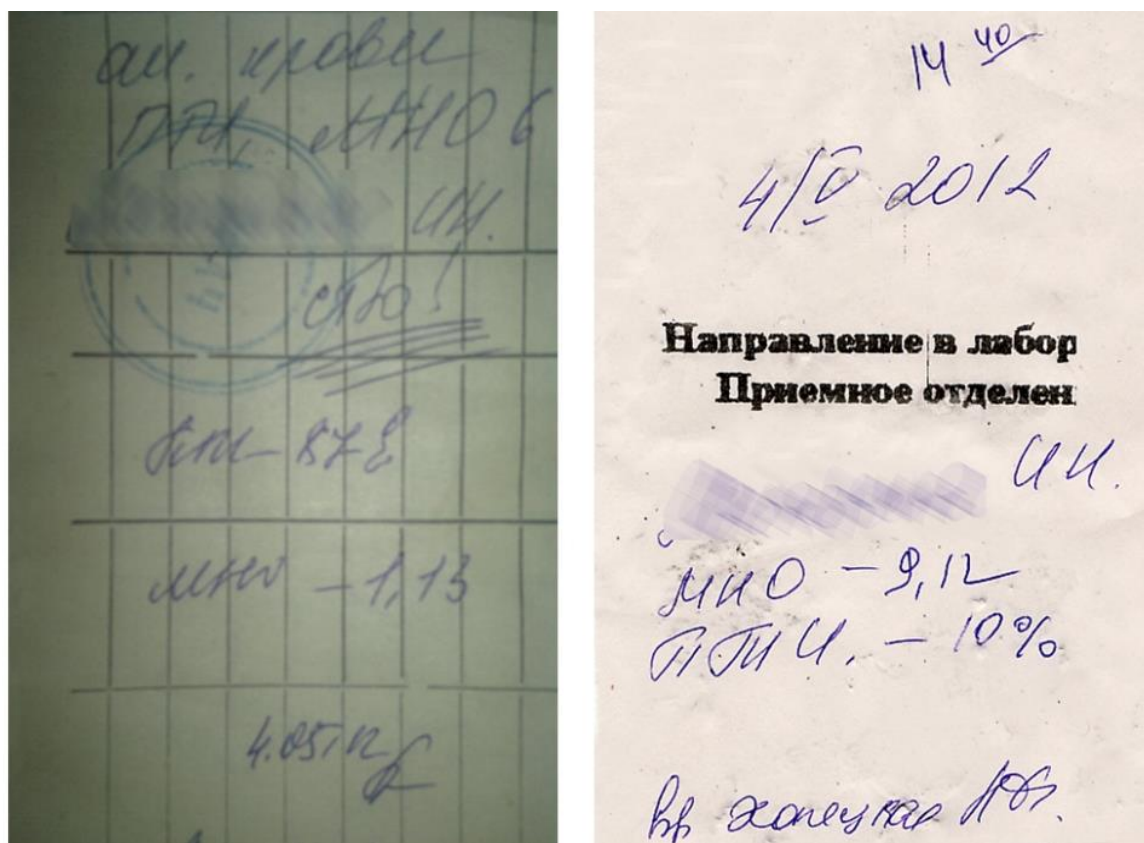 ан. крови
ПТИ, МНО б
И.И.
cito!
ПТИ – 87%
МНО – 1,13
4.05.12
14 40
4/V 2012
Направление в лабор
Приемное отделен
И И.
МНО – 9,12
ПТИ. – 10%
Вр